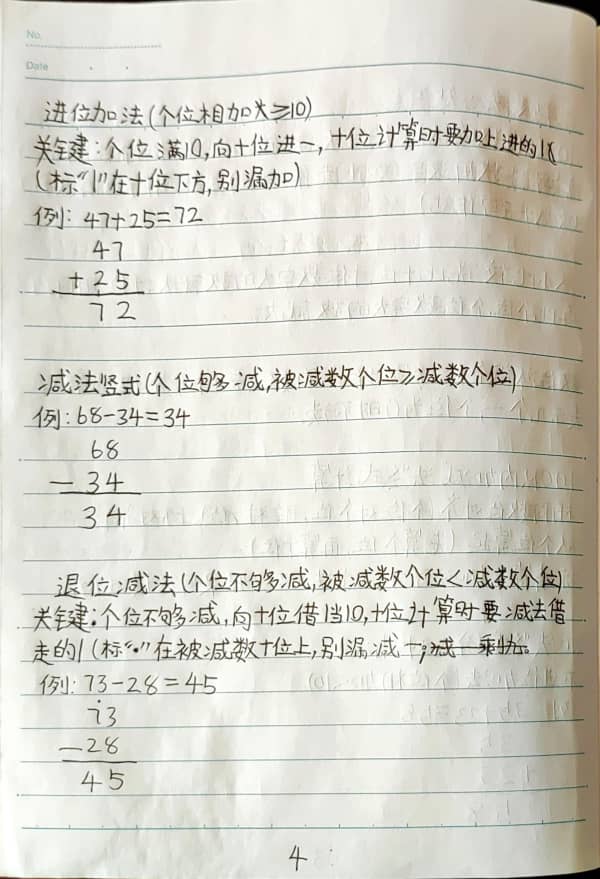 No.
Date
进位加法(个位相加≥10)
关键:个位满10,向十位进一,十位计算时要加上进的1
(标"1"在十位下方,别漏加)
例:47+25=72
47
+25
72
减法竖式(个位够减,被减数个位≥减数个位)
例:68-34=34
68
-34
34
退位减法(个位不够减,被减数个位<减数个位)
关键:个位不够减,向十位借1当10,十位计算时要减去借
走的1(标"·"在被减数十位上,别漏减
例:73-28=45
73
-28
45
4